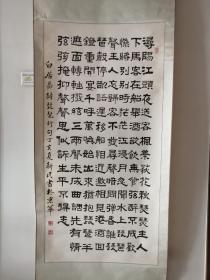 潯陽江頭夜送客楓葉荻花秋瑟瑟主人
下馬客在船舉酒欲飲無管弦醉不成歡
慘將別別時茫茫江浸月忽聞水上琵琶
聲主人忘歸客不發尋聲暗問彈者誰琵
琶聲停欲語遲移船相近邀相見添酒回
燈重開宴千呼萬喚始出來猶抱琵琶半
遮面轉軸撥弦三兩聲未成曲調先有情
弦弦掩抑聲聲思似訴生平不得志
白居易詩琵琶行句丁亥夏新民書於京華